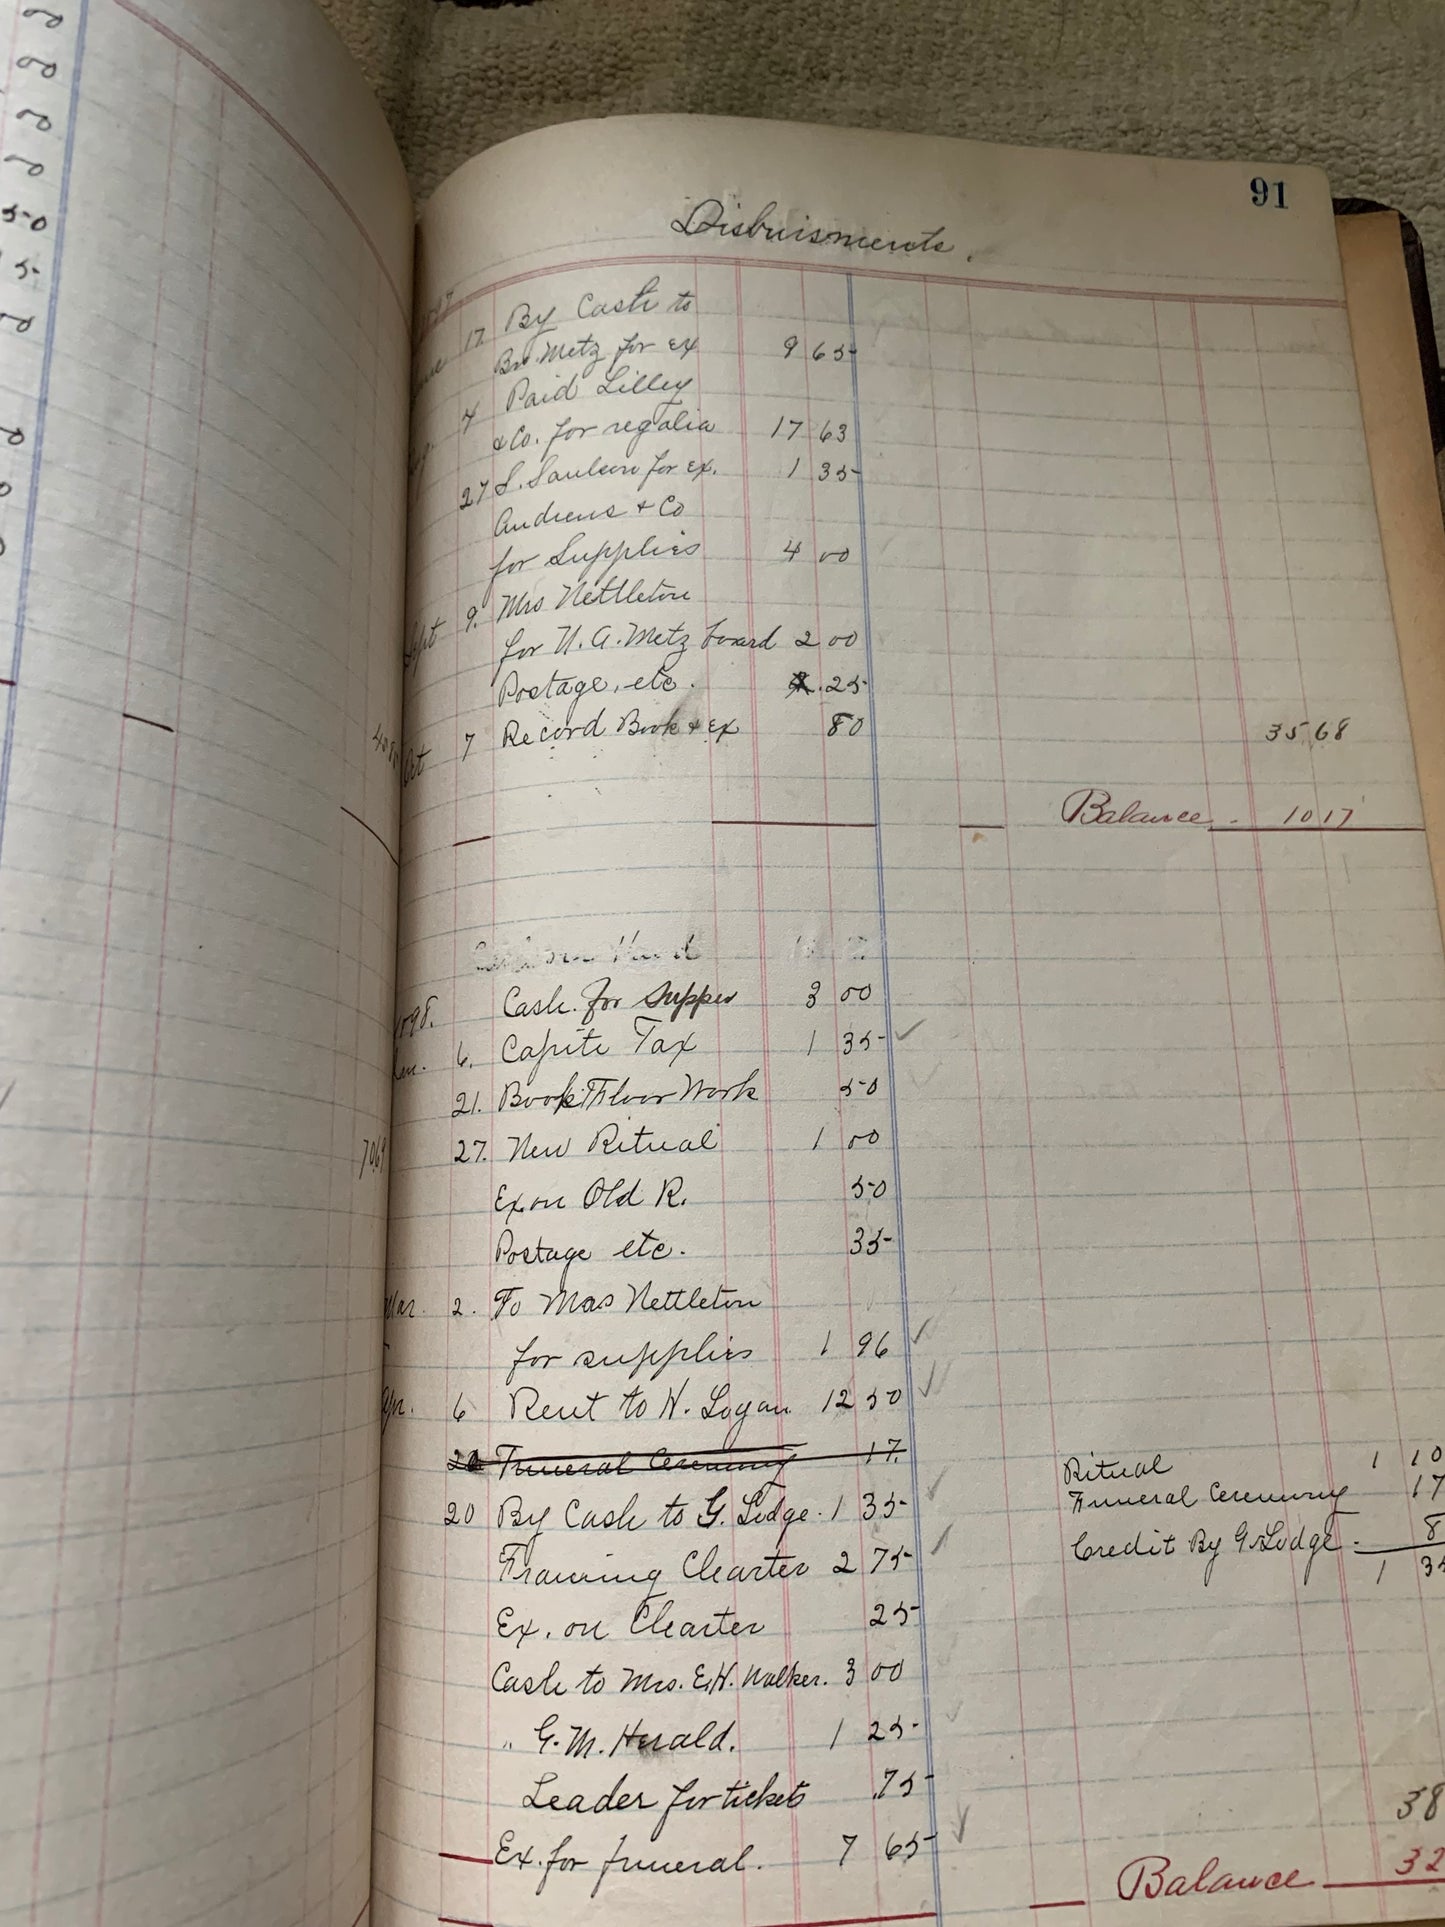 91
Disbuisments.
17. By Cash to
Bro. Metz for ex 9 65
4 Paid Lilley
& Co. for regalia 17 63
27 S. for ex. 1 35
Andrews & Co
for Supplies 4 00
Sept 9. Mrs Nettleton
for N. A. Metz board 2 00
Postage, etc. .25
Oct 7 Record Book & ex 80 35 68
Balance - 10 17
Cash on Hand
1898. Cash. for Supper 3 00
Jan. 6. Capite Tax 1 35
21. Book Floor Work 50
27. New Ritual 1 00
Ex on Old R. 50
Postage etc. 35
Mar. 2. To Mas Nettleton
for supplies 1 96
Apr. 6 Rent to H. Logan 12 50
Funeral Ceremony 17.
20 By Cash to G. Lodge. 1 35
Framing Charter 2 75
Ex. on Charter 25
Cash to Mrs. E. H. Walker. 3 00
" G. M. Herald. 1 25
Leader for tickets .75
Ex. for funeral. 7 65
Ritual 1 10
Funeral Ceremony 17
Credit By G. Lodge - 8
1 35
38
Balance 32